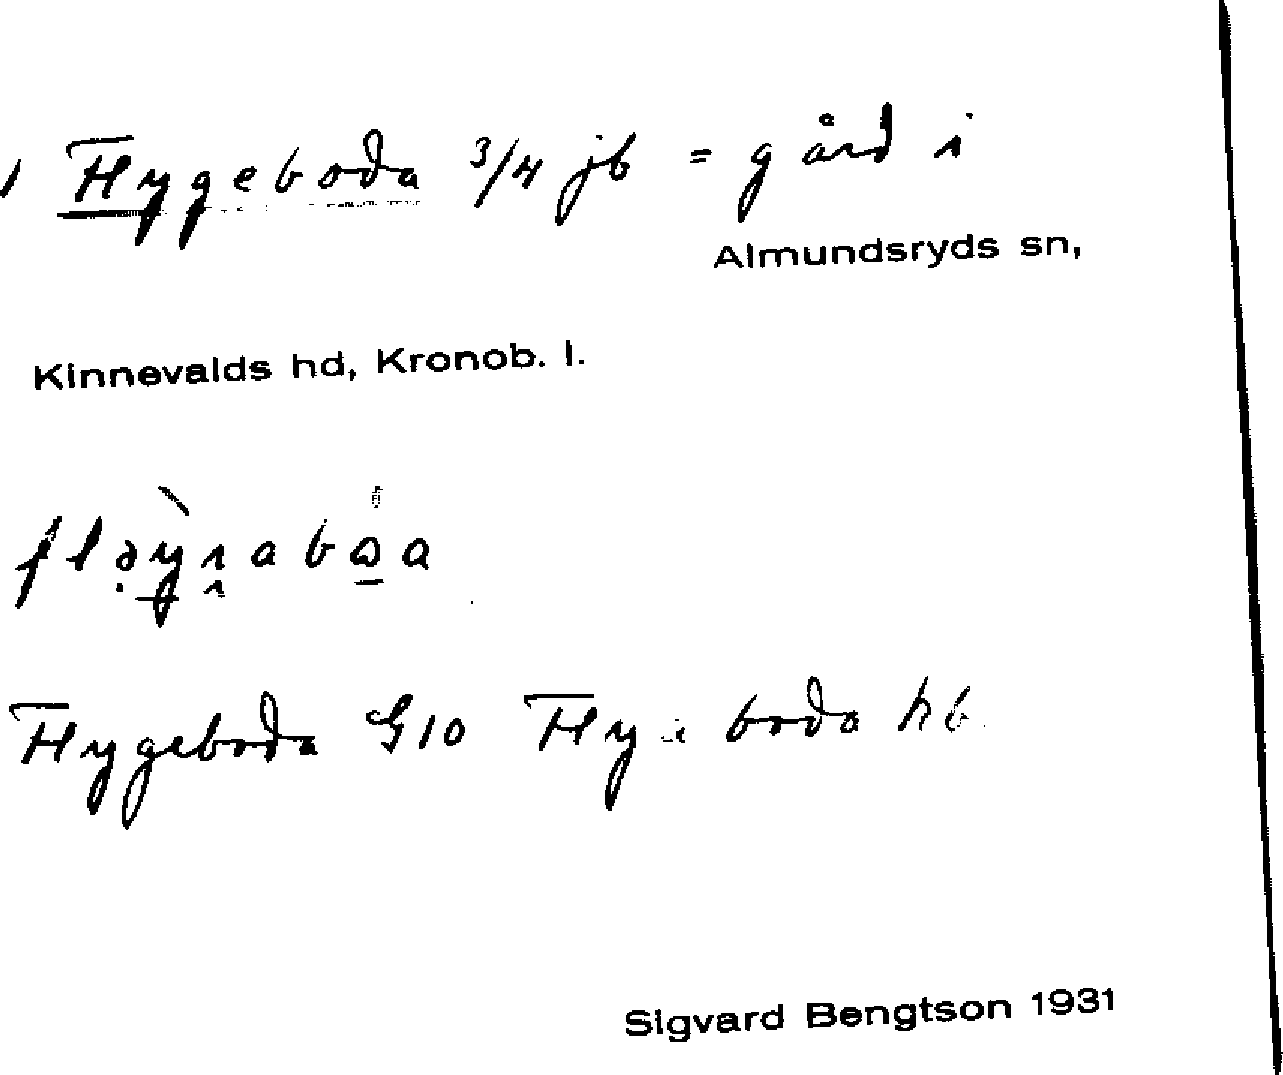 1 Flygeboda 3/4 jb = gård i
Almundsryds sn,
Kinnevalds hd, Kronob. l.
Flygeboda G10 boda hb
Sigvard Bengtson 1931